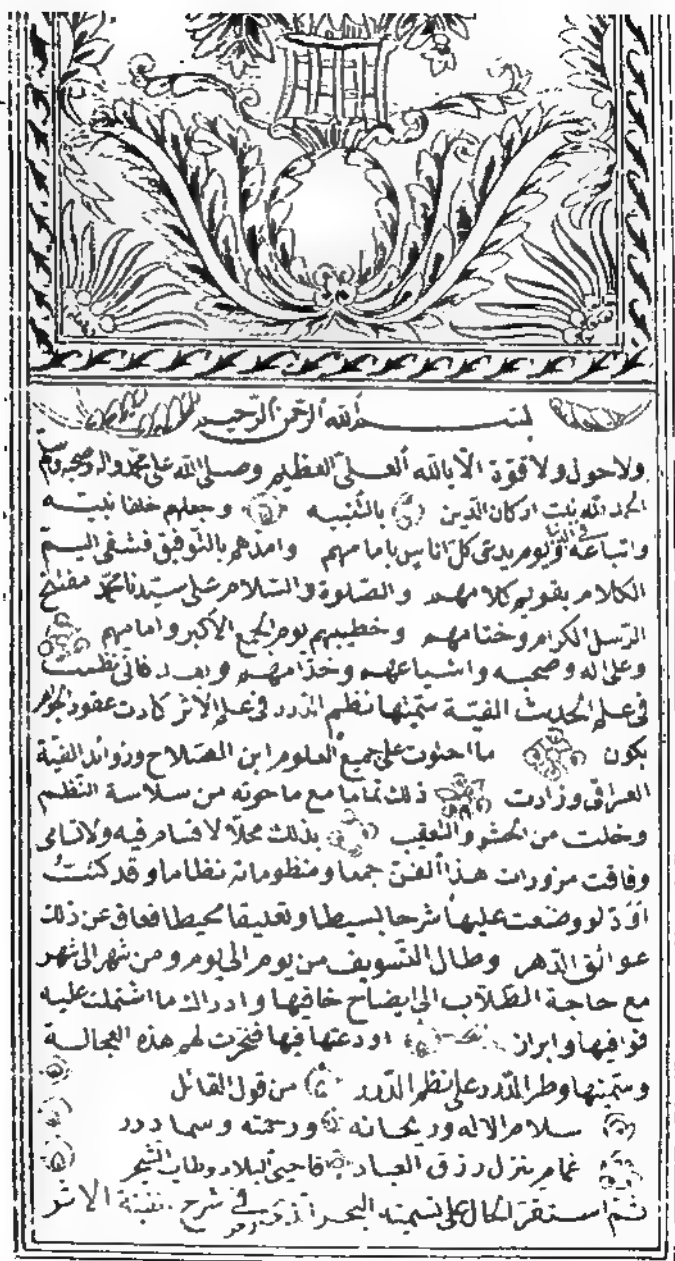 بسم الله الرحمن الرحيم
ولاحول ولا قوة الا بالله العلى العظيم وصلى الله على محمد واله وصحبه وسلم
الحمد لله ثبت اركان الدين بالتنبيه وجعلهم خلفا نبيه
واتباعه فى الدنيا ويوم يدعى كل اناس بامامهم وامدهم بالتوفيق فشفى اليم
الكلام بقويم كلامهم والصلوة والسلام على سيدنا محمد مفتاح
الرسل الكرام وختامهم وخطيبهم يوم الجمع الأكبر وامامهم
وعلى اله وصحبه واشياعهم وخدامهم وبعد فانى نظمت
فى علم الحديث الفية سميتها نظم الدرر فى علم الاثر كادت عقود الجواهر
بكون ما احتوت على جميع علوم ابن الصلاح وزوائد الفية
العراقى وزادت ذلك تماما مع ما حوته من سلاسة النظم
وخلت من الحشو والتعقيب بذلك محلا لا قسام فيه ولا تسامى
وفاقت مزورات هذا الفن جمعا ومنظوماته نظاما وقد كنت
اود لو وضعت عليها شرحا بسيطا وتعليقا محيطا فعاقى عن ذلك
عوائق الدهر وطال التسويف من يوم الى يوم ومن شهر الى شهر
مع حاجة الطلاب الى ايضاح خافيها وادراك ما اشتملت عليه
قوافيها وابراز اودعتها فيها فنجزت لهم هذه العجالة
وسميتها وطر الدرر على نظم الدرر من قول القائل
سلام الاله وريحانه ورحمته وسما درر
غمام ينزل رزق العباد فاحيى البلاد وطاب الشجر
ثم استقر الحال على تسميته البحر الذى زخر فى شرح الفية الاثر